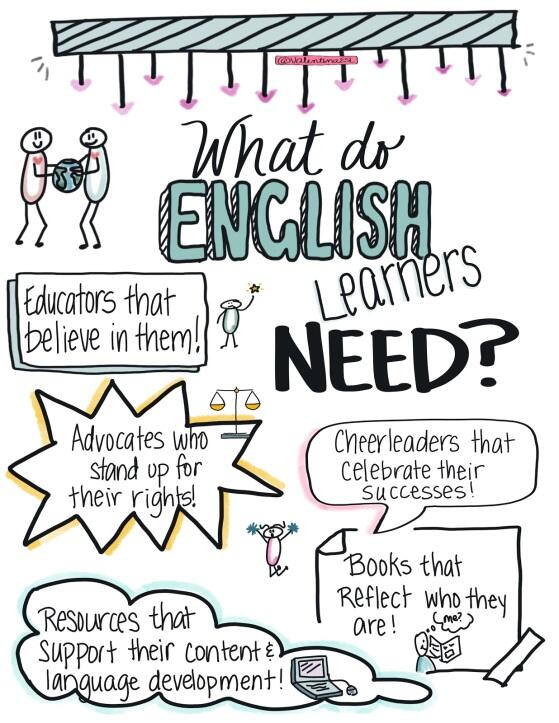 @Valentina ESL
What do
ENGLISH
Learners
NEED?
Educators that
believe in them!
Advocates who
stand up for
their rights!
Cheerleaders that
celebrate their
successes!
Books that
Reflect who they
are!
me?
Resources that
Support their content &
language development!